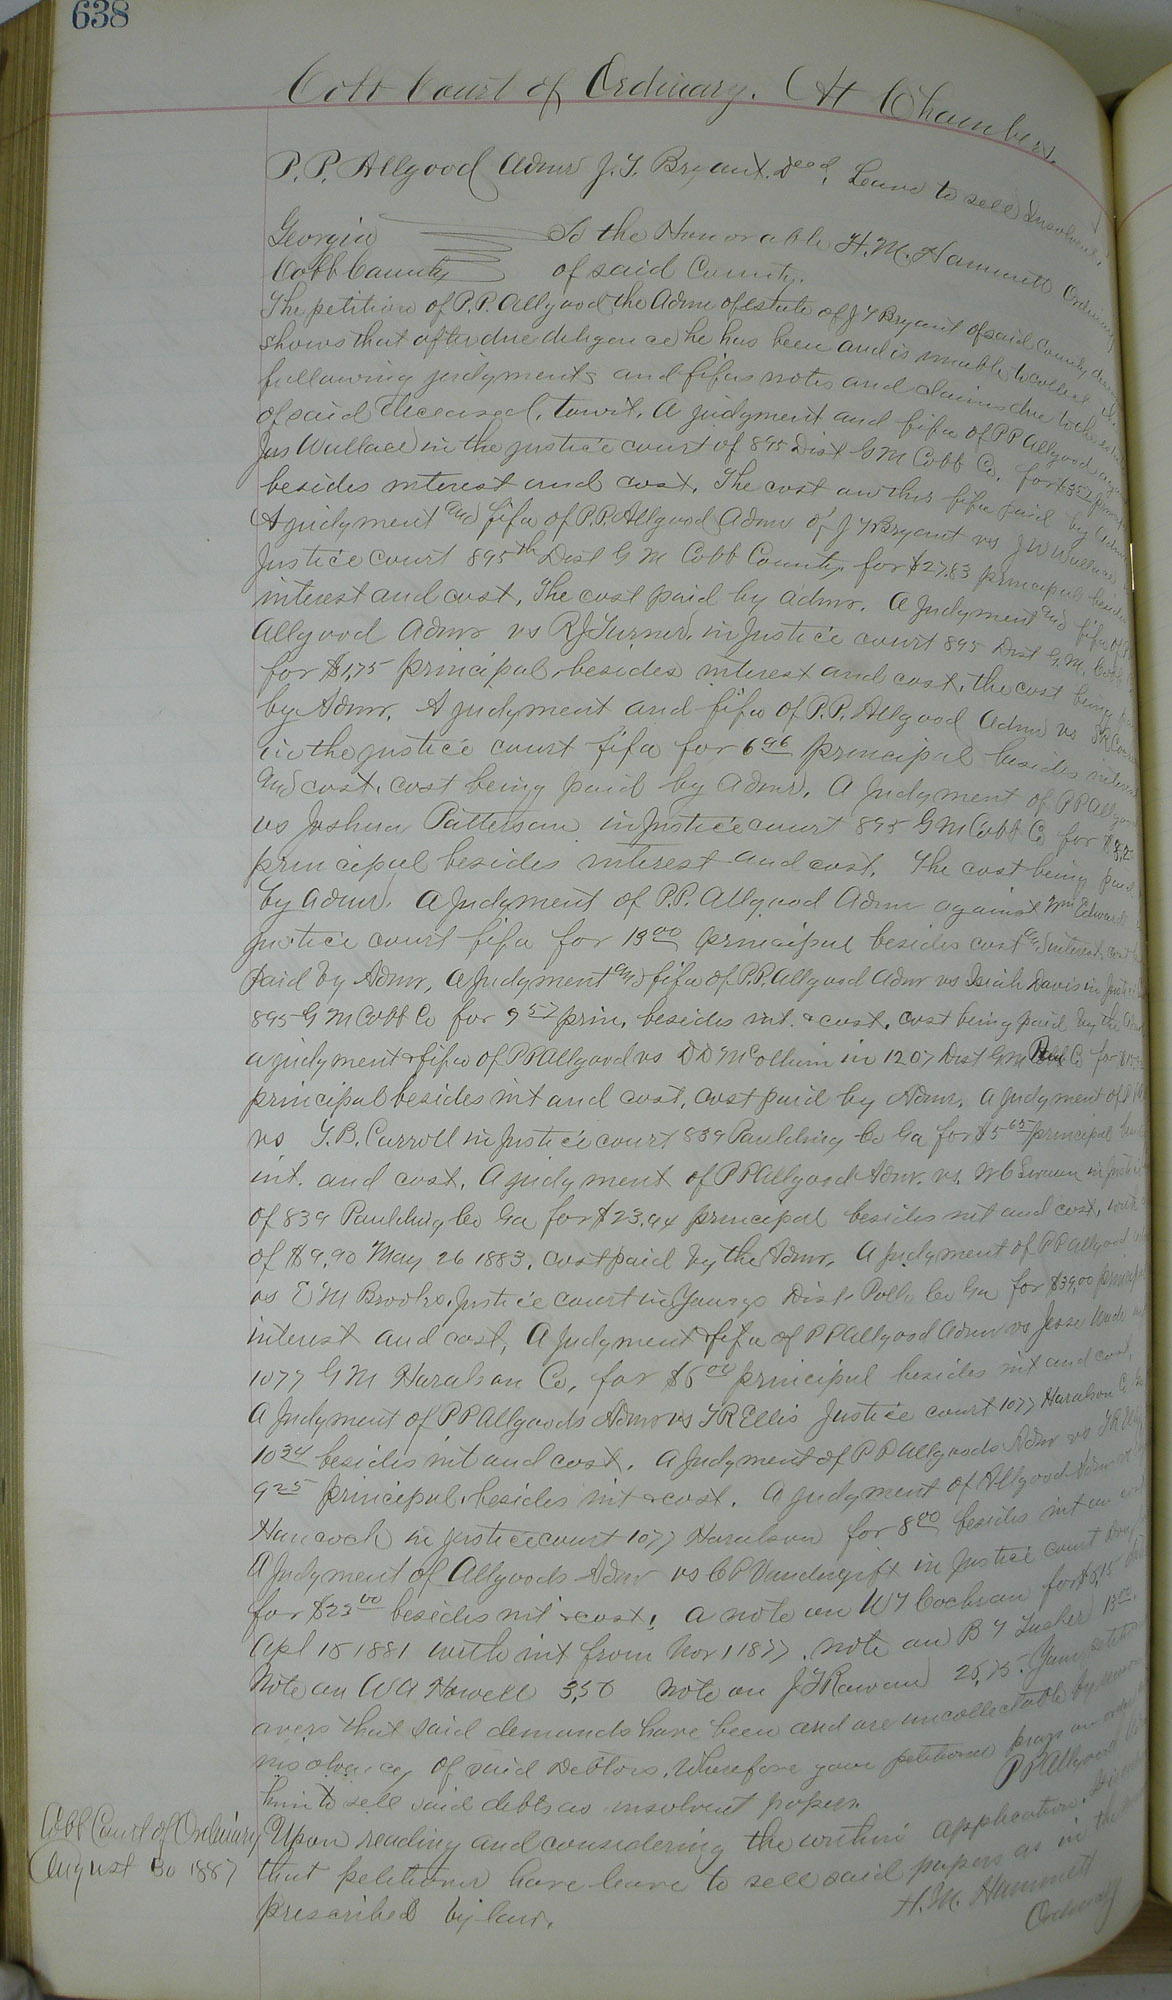 638
Cobb Court of Ordinary. At Chambers.
P. P. Allgood Admr J. T. Bryant. Decd. Leave to sell Insolvent.
Georgia To the Honorable H. M. Hammett Ordinary
Cobb County of said County.
The petition of P. P. Allgood the Admr of estate of J T Bryant of said County
shows that after due deligence he has been and is unable to collect the
following judgments and fifas notes and claims due to the
of said deceased, towit. A judgment and fifa of P P Allgood
Jas Wallace in the justice court of 895 Dist G M Cobb Co. for
besides interest and cost. The cost on this fifa paid by Admr
A judgment and fifa of P. P. Allgood Admr of J T Bryant vs J W Wallace
Justice court 895th Dist G M Cobb County for $27.83 principal
interest and cost. The cost paid by admr. A Judgment and fifa of
Allgood Admr vs R J Turner in Justice court 895 Dist G. M. Cobb
for $1,75 principal besides interest and cost, the cost being
by Admr. A judgment and fifa of P. P. Allgood Admr vs
in the justice court fifa for 6 96 principal besides interest
and cost. cost being paid by admr. A Judgment of P P Allgood
vs Joshua Patterson in Justice court 895 G M Cobb Co for
principal besides interest and cost. The cost being paid
by admr. A Judgment of P. P. Allgood Admr against Wm Edwards
justice court fifa for 13 00 principal besides cost and interest, cost
paid by Admr, A Judgment and fifa of P. P. Allgood Admr vs Isiah Davis in
895 G M Cobb Co for 9 57 prin. besides int. & cost, cost being paid by the
a judgment & fifa of P P Allgood vs D D McCollum in 1207 Dist G M Co for
principal besides int and cost, cost paid by Admr. A Judgment of
vs T. B. Carroll in Justice court 839 Paulding Co Ga for $5 65 principal
int. and cost. A judgment of P P Allgood Admr. vs.
of 839 Paulding Co Ga for $23.94 principal besides int and cost,
of $9.90 May 26 1883, cost paid by the Admr, A Judgment of P P Allgood
vs E M Brooks, Justice court in Youngs Dist. Polk Co Ga for $39,00
interest and cost, A Judgment & fifa of P P Allgood Admr vs Jesse
1077 G M Haralson Co, for $6 00 principal besides int and cost,
A Judgment of P P Allgoods Admr vs T R Ellis Justice court 1077 Haralson
10 34 besides int and cost. A Judgment of P P Allgoods Admr vs
9 25 principal, besides int & cost. A Judgment of Allgood Admr
Hancock in justice court 1077 Haralson for 8 00 besides int
A Judgment of Allgoods Admr vs C P Vandergift in Justice court
for $23 00 besides int & cost, a note on W T Cochran for
Apl 18 1881 with int from Nov 1 1877. note on B T Tucker 13 00.
Note on W A Howell 3,50 note on J T Rowan 25,75. Your petitioner
avers that said demands have been and are uncollectable by
insolvency of said Debtors. Wherefore your petitioner prays an order
P P Allgood
him to sell said debts as insolvent papers.
Cobb Court of Ordinary
August 30 1887
Upon reading and considering the within application.
that petitioner have leave to sell said papers as in the
prescribed by law.
H. M. Hammett
Ordinary